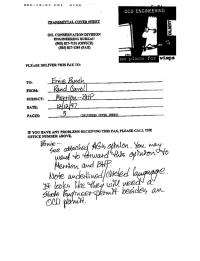 OCD ENGINEERING
TRANSMITTAL COVER SHEET
OIL CONSERVATION DIVISION
ENGINEERING BUREAU
(505) 827-7131 (OFFICE)
(505) 827-1389 (FAX)
no place for wimps
PLEASE DELIVER THIS FAX TO:
TO: Ernie Busch
FROM: Rand Carroll
SUBJECT: Meridian-BHP
DATE:
PAGES: 5 (INCLUDES COVER SHEET)
IF YOU HAVE ANY PROBLEMS RECEIVING THIS FAX, PLEASE CALL THE
OFFICE NUMBER ABOVE.
Ernie--
See attached AG's opinion. You may
want to forward this opinion to
Meridian and BHP.
Note underlined/circled language.
It looks like they will need a
State Engineer permit besides an
OCD permit.